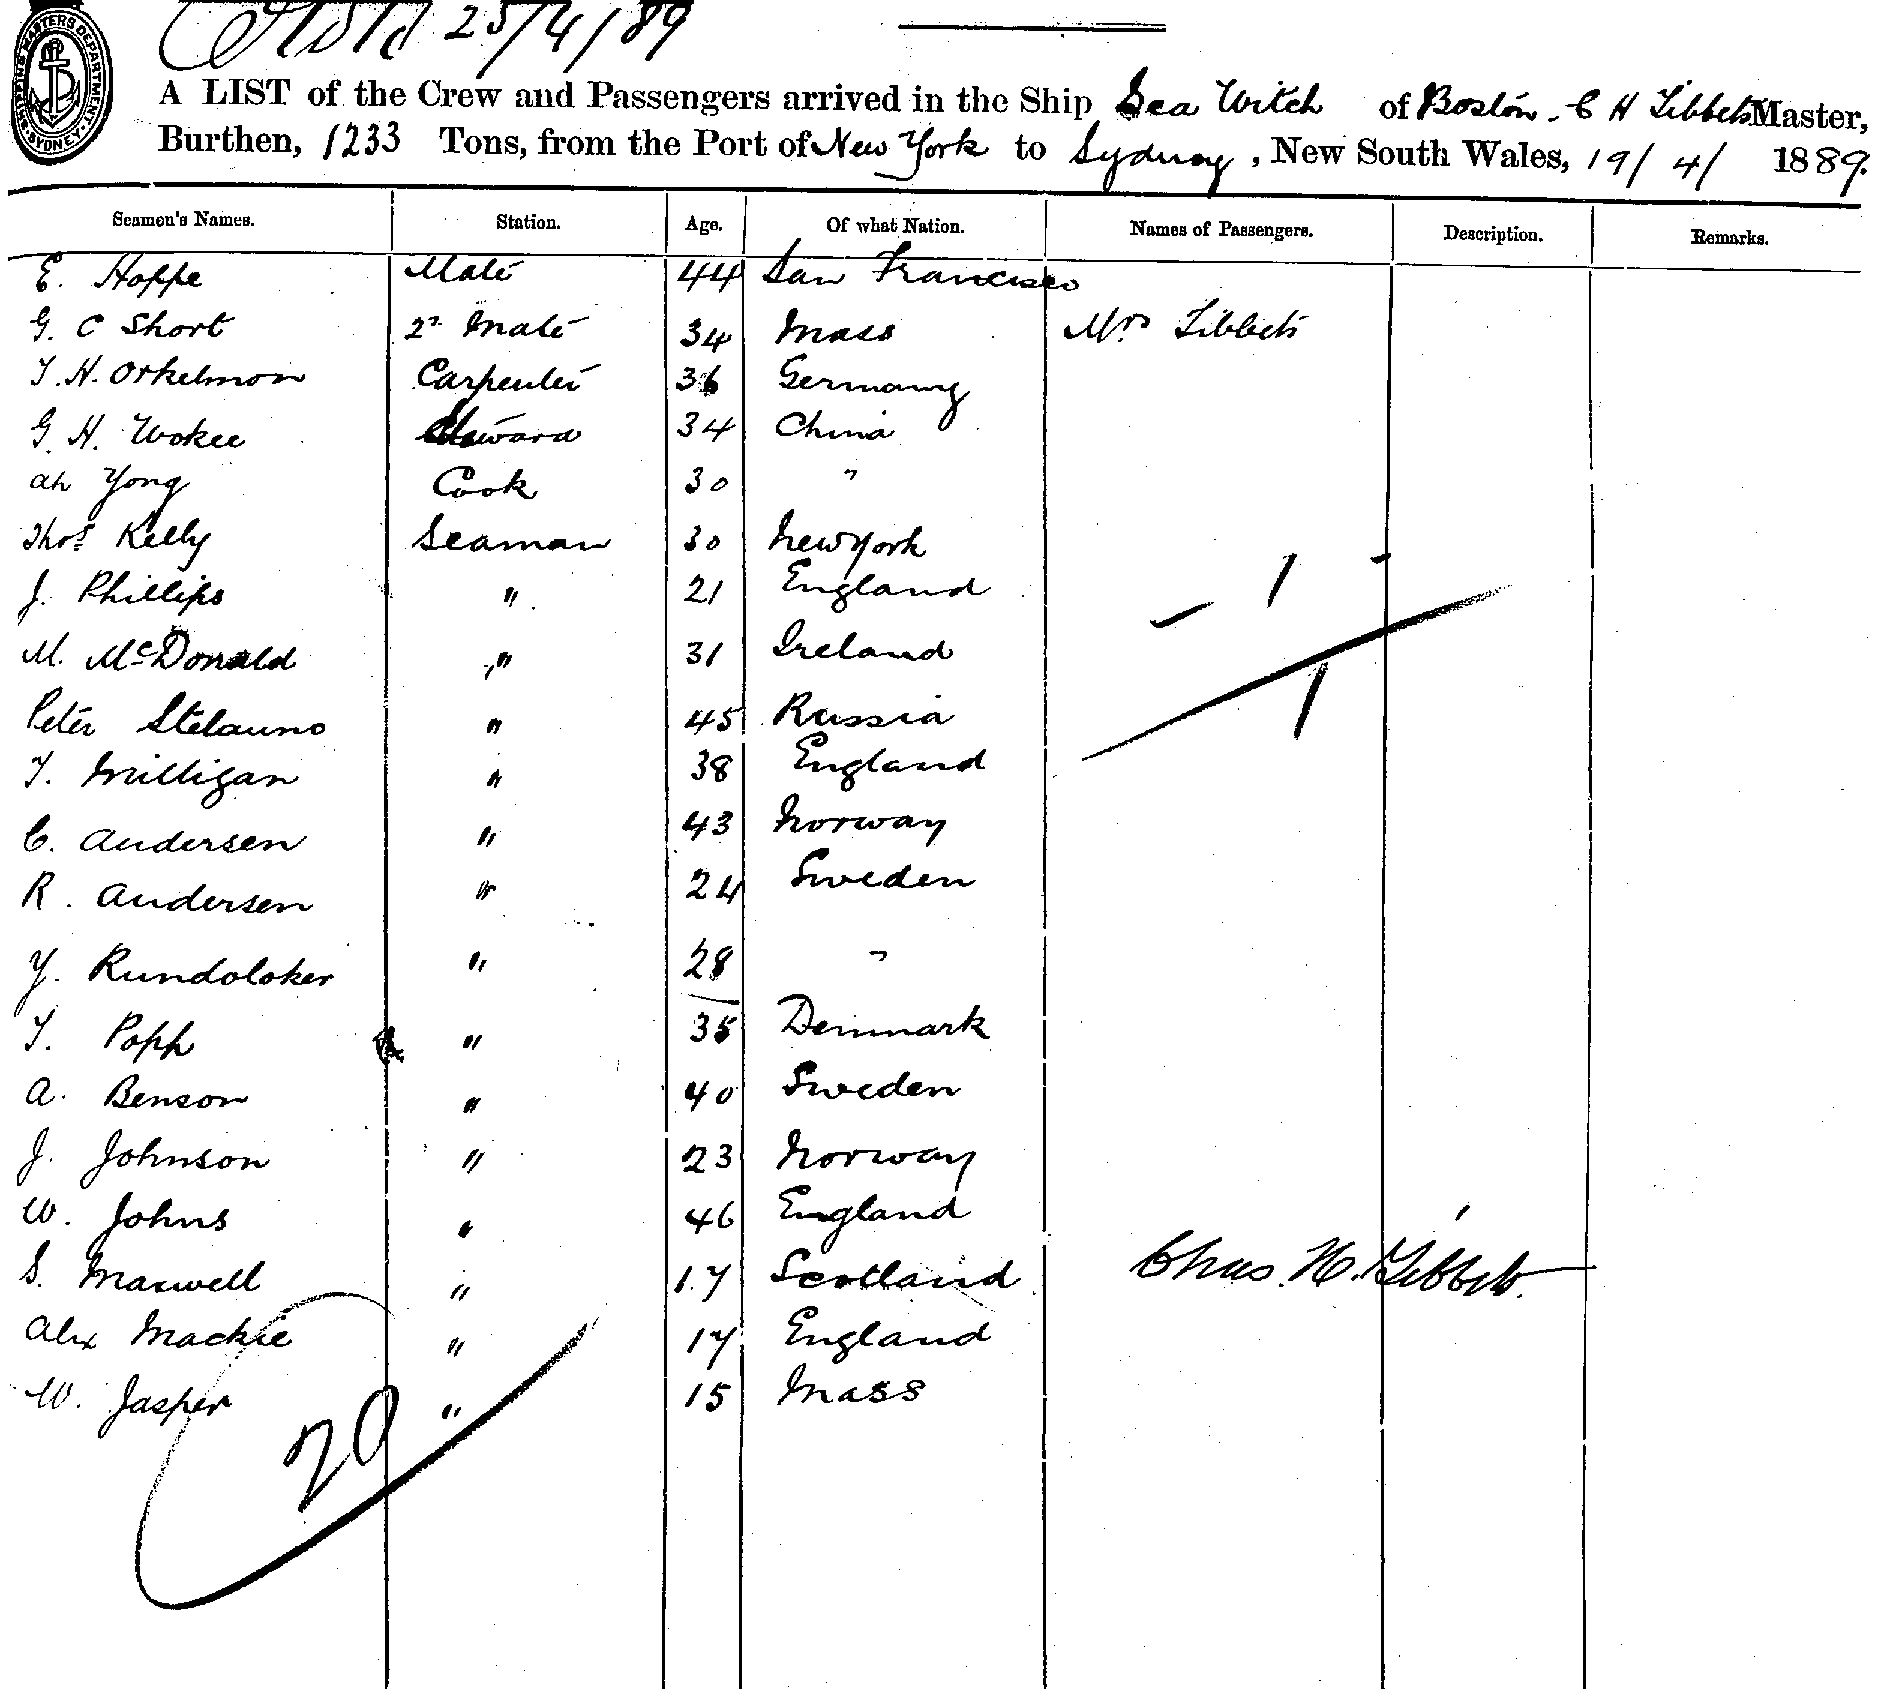 25/4/89
SHIPPING MASTERS DEPARTMENT SYDNEY
A LIST of the Crew and Passengers arrived in the Ship Sea Witch of Boston - C H Tibbets Master,
Burthen, 1233 Tons, from the Port of New York to Sydney, New South Wales, 19/4/ 1889.
Seamen's Names. Station. Age. Of what Nation. Names of Passengers. Description. Remarks.
E. Hoppe Mate 44 San Francisco
G. C Short 2n Mate 34 Mass Mrs Tibbets
T. H. Orkelmon Carpenter 36 Germany
G. H. Wokee Steward 34 China
Ah Yong Cook 30 "
Thos Kelly Seaman 30 New York
J. Phillips " 21 England - 1 -
M. McDonald " 31 Ireland
Peter Stelauno " 45 Russia 1
T. Milligan " 38 England
C. Andersen " 43 Norway
R. Andersen " 24 Sweden
Y. Rundoloker " 28 "
T. Popp " 35 Denmark
A. Benson " 40 Sweden
J. Johnson " 23 Norway
W. Johns " 46 England
S. Maxwell " 17 Scotland Chas. H. Tibbets
Alex Mackie " 17 England
W. Jasper " 15 Mass
20